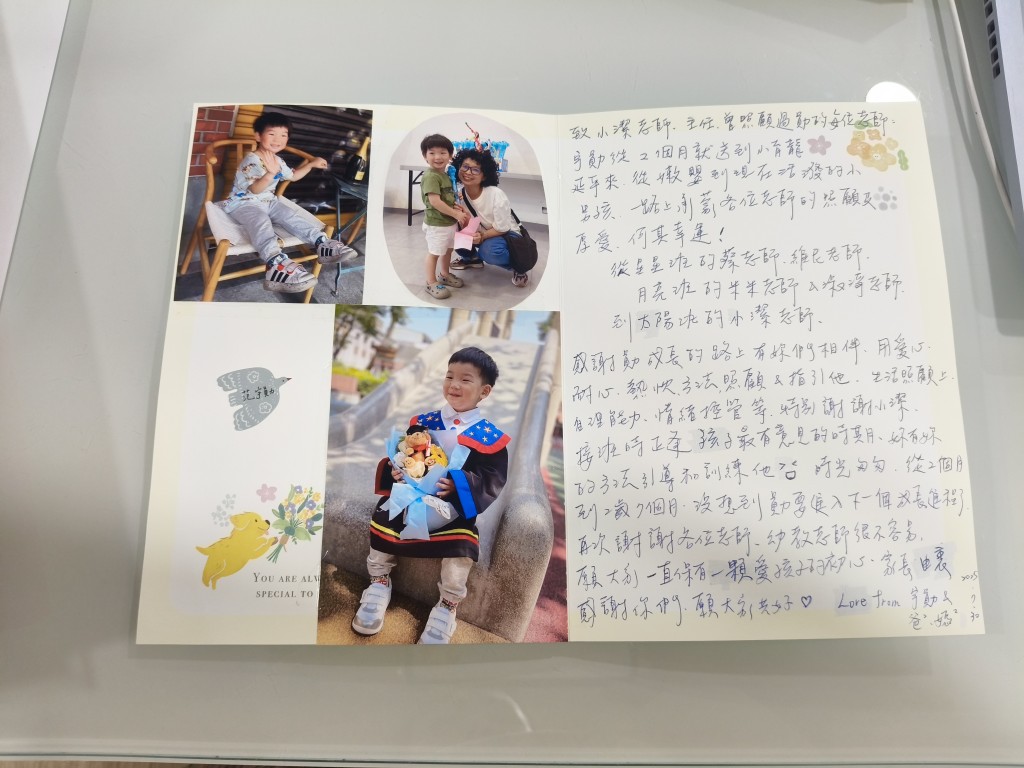 范宇勳
YOU ARE ALW
SPECIAL TO
致 小潔老師、主任、曾照顧過勳的每位老師:
宇勳從2個月就送到小青龍
延平來,從襁褓到現在活潑的小
男孩,一路上承蒙各位老師的照顧及
厚愛,何其幸運!
從星星班的蔡老師、維尼老師、
月亮班的朱朱老師&淑淳老師、
到太陽班的小潔老師、
感謝勳成長的路上有妳們相伴,用愛心、
耐心、熱忱方法照顧&指引他,生活照顧上、
自理能力、情緒控管等,特別謝謝小潔,
接班時正逢孩子最有意見的時期,妳有妳
的方法引導和訓練他 時光匆匆,從2個月
到2歲7個月,沒想到勳要進入下一個成長進程了
再次謝謝各位老師,幼教老師很不容易,
願大家一直保有一顆愛孩子的初心,家長由衷
感謝你們,願大家安好♡ Love from 宇勳&
爸爸、媽媽
2025
7
30